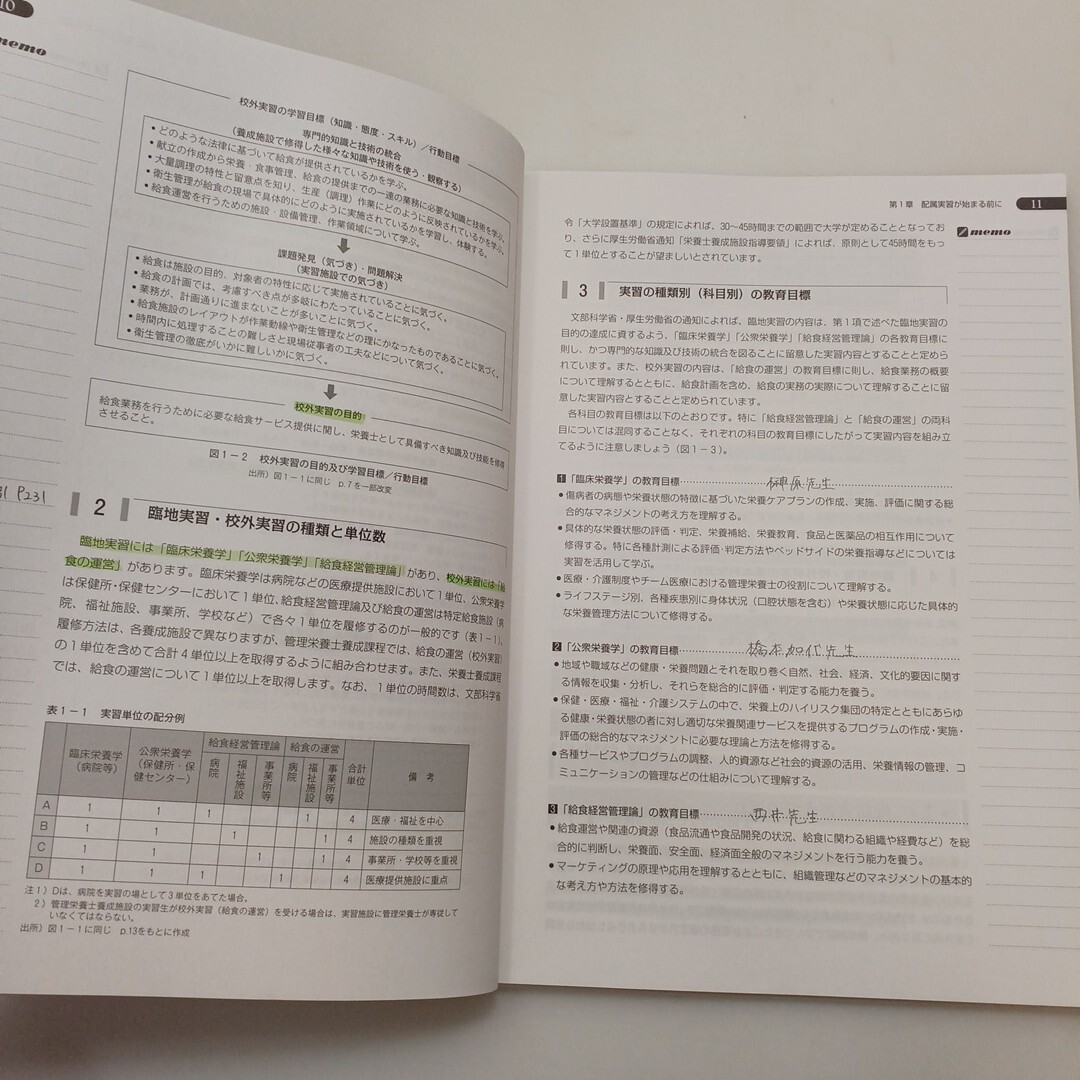 10
memo
校外実習の学習目標（知識・態度・スキル）／行動目標
専門的知識と技術の統合
（養成施設で修得した様々な知識や技術を使う・観察する）
• どのような法律に基づいて給食が提供されているかを学ぶ。
• 献立の作成から栄養・食事管理、給食の提供までの一連の業務に必要な知識と技術を学ぶ。
• 大量調理の特性と留意点を知り、生産（調理）作業にどのように反映されているかを学ぶ。
• 衛生管理が給食の現場で具体的にどのように実施されているかを学習し、体験する。
• 給食運営を行うための施設・設備管理、作業領域について学ぶ。
課題発見（気づき）・問題解決
（実習施設での気づき）
• 給食は施設の目的、対象者の特性に応じて実施されていることに気づく。
• 給食の計画では、考慮すべき点が多岐にわたっていることに気づく。
• 業務が、計画通りに進まないことが多いことに気づく。
• 給食施設のレイアウトが作業動線や衛生管理などの理にかなったものであることに気づく。
• 時間内に処理することの難しさと現場従事者の工夫などについて気づく。
• 衛生管理の徹底がいかに難しいかに気づく。
校外実習の目的
給食業務を行うために必要な給食サービス提供に関し、栄養士として具備すべき知識及び技能を修得
させること。
図1－2　校外実習の目的及び学習目標／行動目標
出所）図1－1に同じ　p.7を一部改変
P231
2　臨地実習・校外実習の種類と単位数
臨地実習には「臨床栄養学」「公衆栄養学」「給食経営管理論」があり、校外実習には「給
食の運営」があります。臨床栄養学は病院などの医療提供施設において1単位、公衆栄養学
は保健所・保健センターにおいて1単位、給食経営管理論及び給食の運営は特定給食施設（病
院、福祉施設、事業所、学校など）で各々1単位を履修するのが一般的です（表1－1）。
履修方法は、各養成施設で異なりますが、管理栄養士養成課程では、給食の運営（校外実習）
の1単位を含めて合計4単位以上を取得するように組み合わせます。また、栄養士養成課程
では、給食の運営について1単位以上を取得します。なお、1単位の時間数は、文部科学省
表1－1　実習単位の配分例
臨床栄養学（病院等）　公衆栄養学（保健所・保健センター）　給食経営管理論　給食の運営　合計単位　備　考
病院　福祉施設　事業所等　病院　福祉施設　事業所等
A　1　1　1　1　4　医療・福祉を中心
B　1　1　1　1　4　施設の種類を重視
C　1　1　1　1　4　事業所・学校等を重視
D　1　1　1　1　4　医療提供施設に重点
注1）Dは、病院を実習の場として3単位をあてた場合。
2）管理栄養士養成施設の実習生が校外実習（給食の運営）を受ける場合は、実習施設に管理栄養士が専従して
いなくてはならない。
出所）図1－1に同じ　p.13をもとに作成
第1章　配属実習が始まる前に　11
memo
令「大学設置基準」の規定によれば、30～45時間までの範囲で大学が定めることとなってお
り、さらに厚生労働省通知「栄養士養成施設指導要領」によれば、原則として45時間をもっ
て1単位とすることが望ましいとされています。
3　実習の種類別（科目別）の教育目標
文部科学省・厚生労働省の通知によれば、臨地実習の内容は、第1項で述べた臨地実習の
目的の達成に資するよう、「臨床栄養学」「公衆栄養学」「給食経営管理論」の各教育目標に
則し、かつ専門的な知識及び技術の統合を図ることに留意した実習内容とすることと定めら
れています。また、校外実習の内容は、「給食の運営」の教育目標に則し、給食業務の概要
について理解するとともに、給食計画を含め、給食の実務の実際について理解することに留
意した実習内容とすることと定められています。
各科目の教育目標は以下のとおりです。特に「給食経営管理論」と「給食の運営」の両科
目については混同することなく、それぞれの科目の教育目標にしたがって実習内容を組み立
てるように注意しましょう（図1－3）。
1「臨床栄養学」の教育目標 榊原先生
• 傷病者の病態や栄養状態の特徴に基づいた栄養ケアプランの作成、実施、評価に関する総
合的なマネジメントの考え方を理解する。
• 具体的な栄養状態の評価・判定、栄養補給、栄養教育、食品と医薬品の相互作用について
修得する。特に各種計測による評価・判定方法やベッドサイドの栄養指導などについては
実習を活用して学ぶ。
• 医療・介護制度やチーム医療における管理栄養士の役割について理解する。
• ライフステージ別、各種疾患別に身体状況（口腔状態を含む）や栄養状態に応じた具体的
な栄養管理方法について修得する。
2「公衆栄養学」の教育目標 橋本加代先生
• 地域や職域などの健康・栄養問題とそれを取り巻く自然、社会、経済、文化的要因に関す
る情報を収集・分析し、それらを総合的に評価・判定する能力を養う。
• 保健・医療・福祉・介護システムの中で、栄養上のハイリスク集団の特定とともにあらゆ
る健康・栄養状態の者に対し適切な栄養関連サービスを提供するプログラムの作成・実施・
評価の総合的なマネジメントに必要な理論と方法を修得する。
• 各種サービスやプログラムの調整、人的資源など社会的資源の活用、栄養情報の管理、コ
ミュニケーションの管理などの仕組みについて理解する。
3「給食経営管理論」の教育目標 西井先生
• 給食運営や関連の資源（食品流通や食品開発の状況、給食に関わる組織や経費など）を総
合的に判断し、栄養面、安全面、経済面全般のマネジメントを行う能力を養う。
• マーケティングの原理や応用を理解するとともに、組織管理などのマネジメントの基本的
な考え方や方法を修得する。